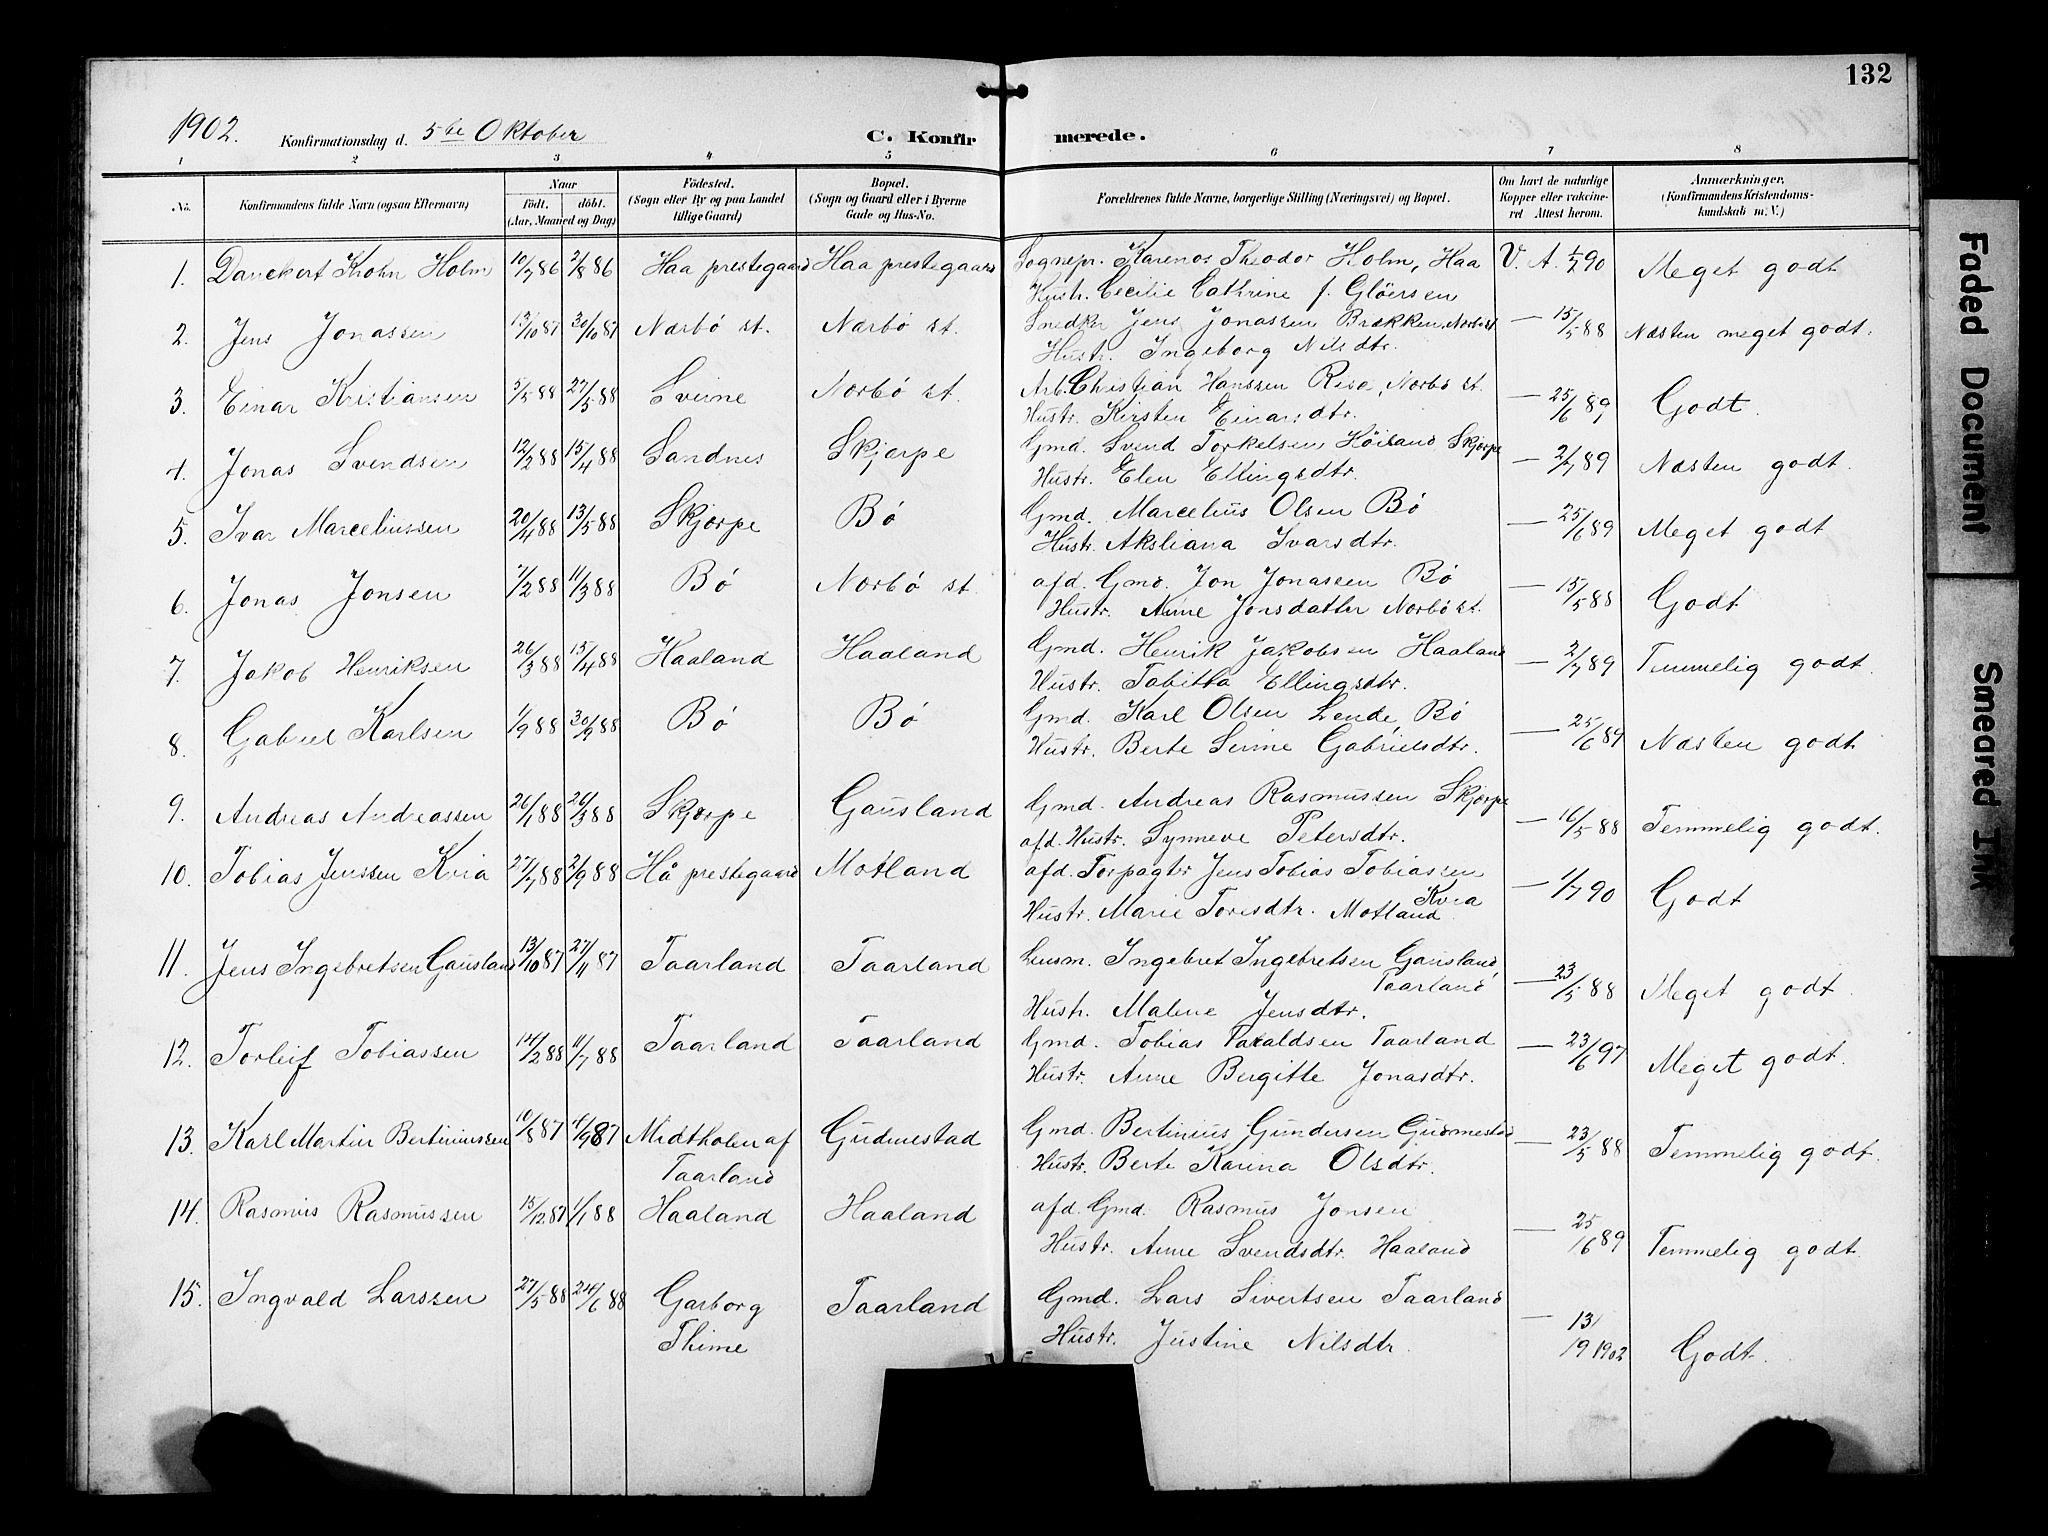 132
1902. Konfirmationsdag d. 5te Oktober C. Konfirmerede.
1 2 3 4 5 6 7 8
No. Konfirmandens fulde Navn (ogsaa Efternavn) Naar Født, døbt. (Aar, Maaned og Dag) Fødested. (Sogn eller By og paa Landet tillige Gaard) Bopæl. (Sogn og Gaard eller i Byerne Gade og Hus-No. Forældrenes fulde Navne, borgerlige Stilling (Næringsvei) og Bopæl. Om havt de naturlige Kopper eller vakcineret Attest herom. Anmærkninger. (Konfirmandens Kristendomskundskab m. V.)
1. Danckert Krohn Holm 10/7 86 2/8 86 Haa prestegaard Haa prestegaard Sognepr. Karenos Theodor Holm, Haa V. A. 1/7 90 Meget godt
Hustr. Cecilie Cathrine f. Gløersen
2. Jens Jonassen 13/10 87 30/10 87 Nærbø st. Nærbø st. Snedker Jens Jonassen Brækken, Nærbø st — 15/5 88 Næsten meget godt.
Hustr. Ingeborg Nilsdtr.
3. Einar Kristiansen 5/5 88 27/5 88 Nærbø st. Arb. Christian Hanssen Rise, Nærbø st. — 25/6 89 Godt.
Hustr. Kirsten Einarsdtr.
4. Jonas Svendsen 12/2 88 15/4 88 Sandnes Skjærpe Gmd. Svend Torkelsen Høiland Skjærpe — 2/7 89 Næsten godt.
Hustr. Elen Ellingsdtr.
5. Ivar Marceliussen 20/4 88 13/5 88 Skjærpe Bø Gmd. Marcelius Olsen Bø — 25/6 89 Meget godt
Hustr. Aksliana Ivarsdtr.
6. Jonas Jonsen 7/2 88 11/3 88 Bø Nærbø st. afd. Gmd. Jon Jonassen Bø — 15/5 88 Godt
Hustr. Anne Jonsdatter Nærbø st.
7. Jakob Henriksen 26/3 88 15/4 88 Haaland Haaland Gmd. Henrik Jakobsen Haaland — 2/7 89 Temmelig godt.
Hustr. Tabitha Ellingsdtr.
8. Gabriel Karlsen 1/9 88 30/9 88 Bø Bø Gmd. Karl Olsen Lende, Bø — 25/6 89 Næsten godt
Hustr. Berte Serine Gabrielsdtr.
9. Andreas Andreassen 26/1 88 26/3 88 Skjærpe Gausland Gmd. Andreas Rasmussen Skjærpe — 16/5 88 Temmelig godt.
afd. Hustr. Synneve Petersdtr.
10. Tobias Jenssen Kvia 27/7 88 2/9 88 Hå prestegaard Motland afd. Forpagtr Jens Tobias Tobiassen Kvia — 1/7 90 Godt
Hustr. Marie Toresdtr. Motland
11. Jens Ingebretsen Gausland 13/10 87 27/11 87 Taarland Taarland Lensm. Ingebret Ingebretsen Gausland, Taarland — 23/5 88 Meget godt.
Hustr. Malene Jensdtr.
12. Torleif Tobiassen 14/2 88 11/7 88 Taarland Taarland Gmd. Tobias Taraldsen Taarland — 23/6 97 Meget godt.
Hustr. Anne Bergitte Jonasdtr.
13. Karl Martin Bertiniussen 10/8 87 11/9 87 Midtholen af Taarland Gudmestad Gmd. Bertinius Gundersen Gudmestad — 23/5 88 Temmelig godt.
Hustr. Berte Karina Olsdtr.
14. Rasmus Rasmussen 15/12 87 1/1 88 Haaland Haaland afd. Gmd. Rasmus Jonsen — 25/6 89 Temmelig godt
Hustr. Anne Svendsdtr. Haaland
15. Ingvald Larssen 27/5 88 24/6 88 Garborg Thime Taarland Gmd. Lars Sivertsen Taarland — 13/9 1902 Godt.
Hustr. Justine Nilsdtr.
Faded Document
Smeared Ink